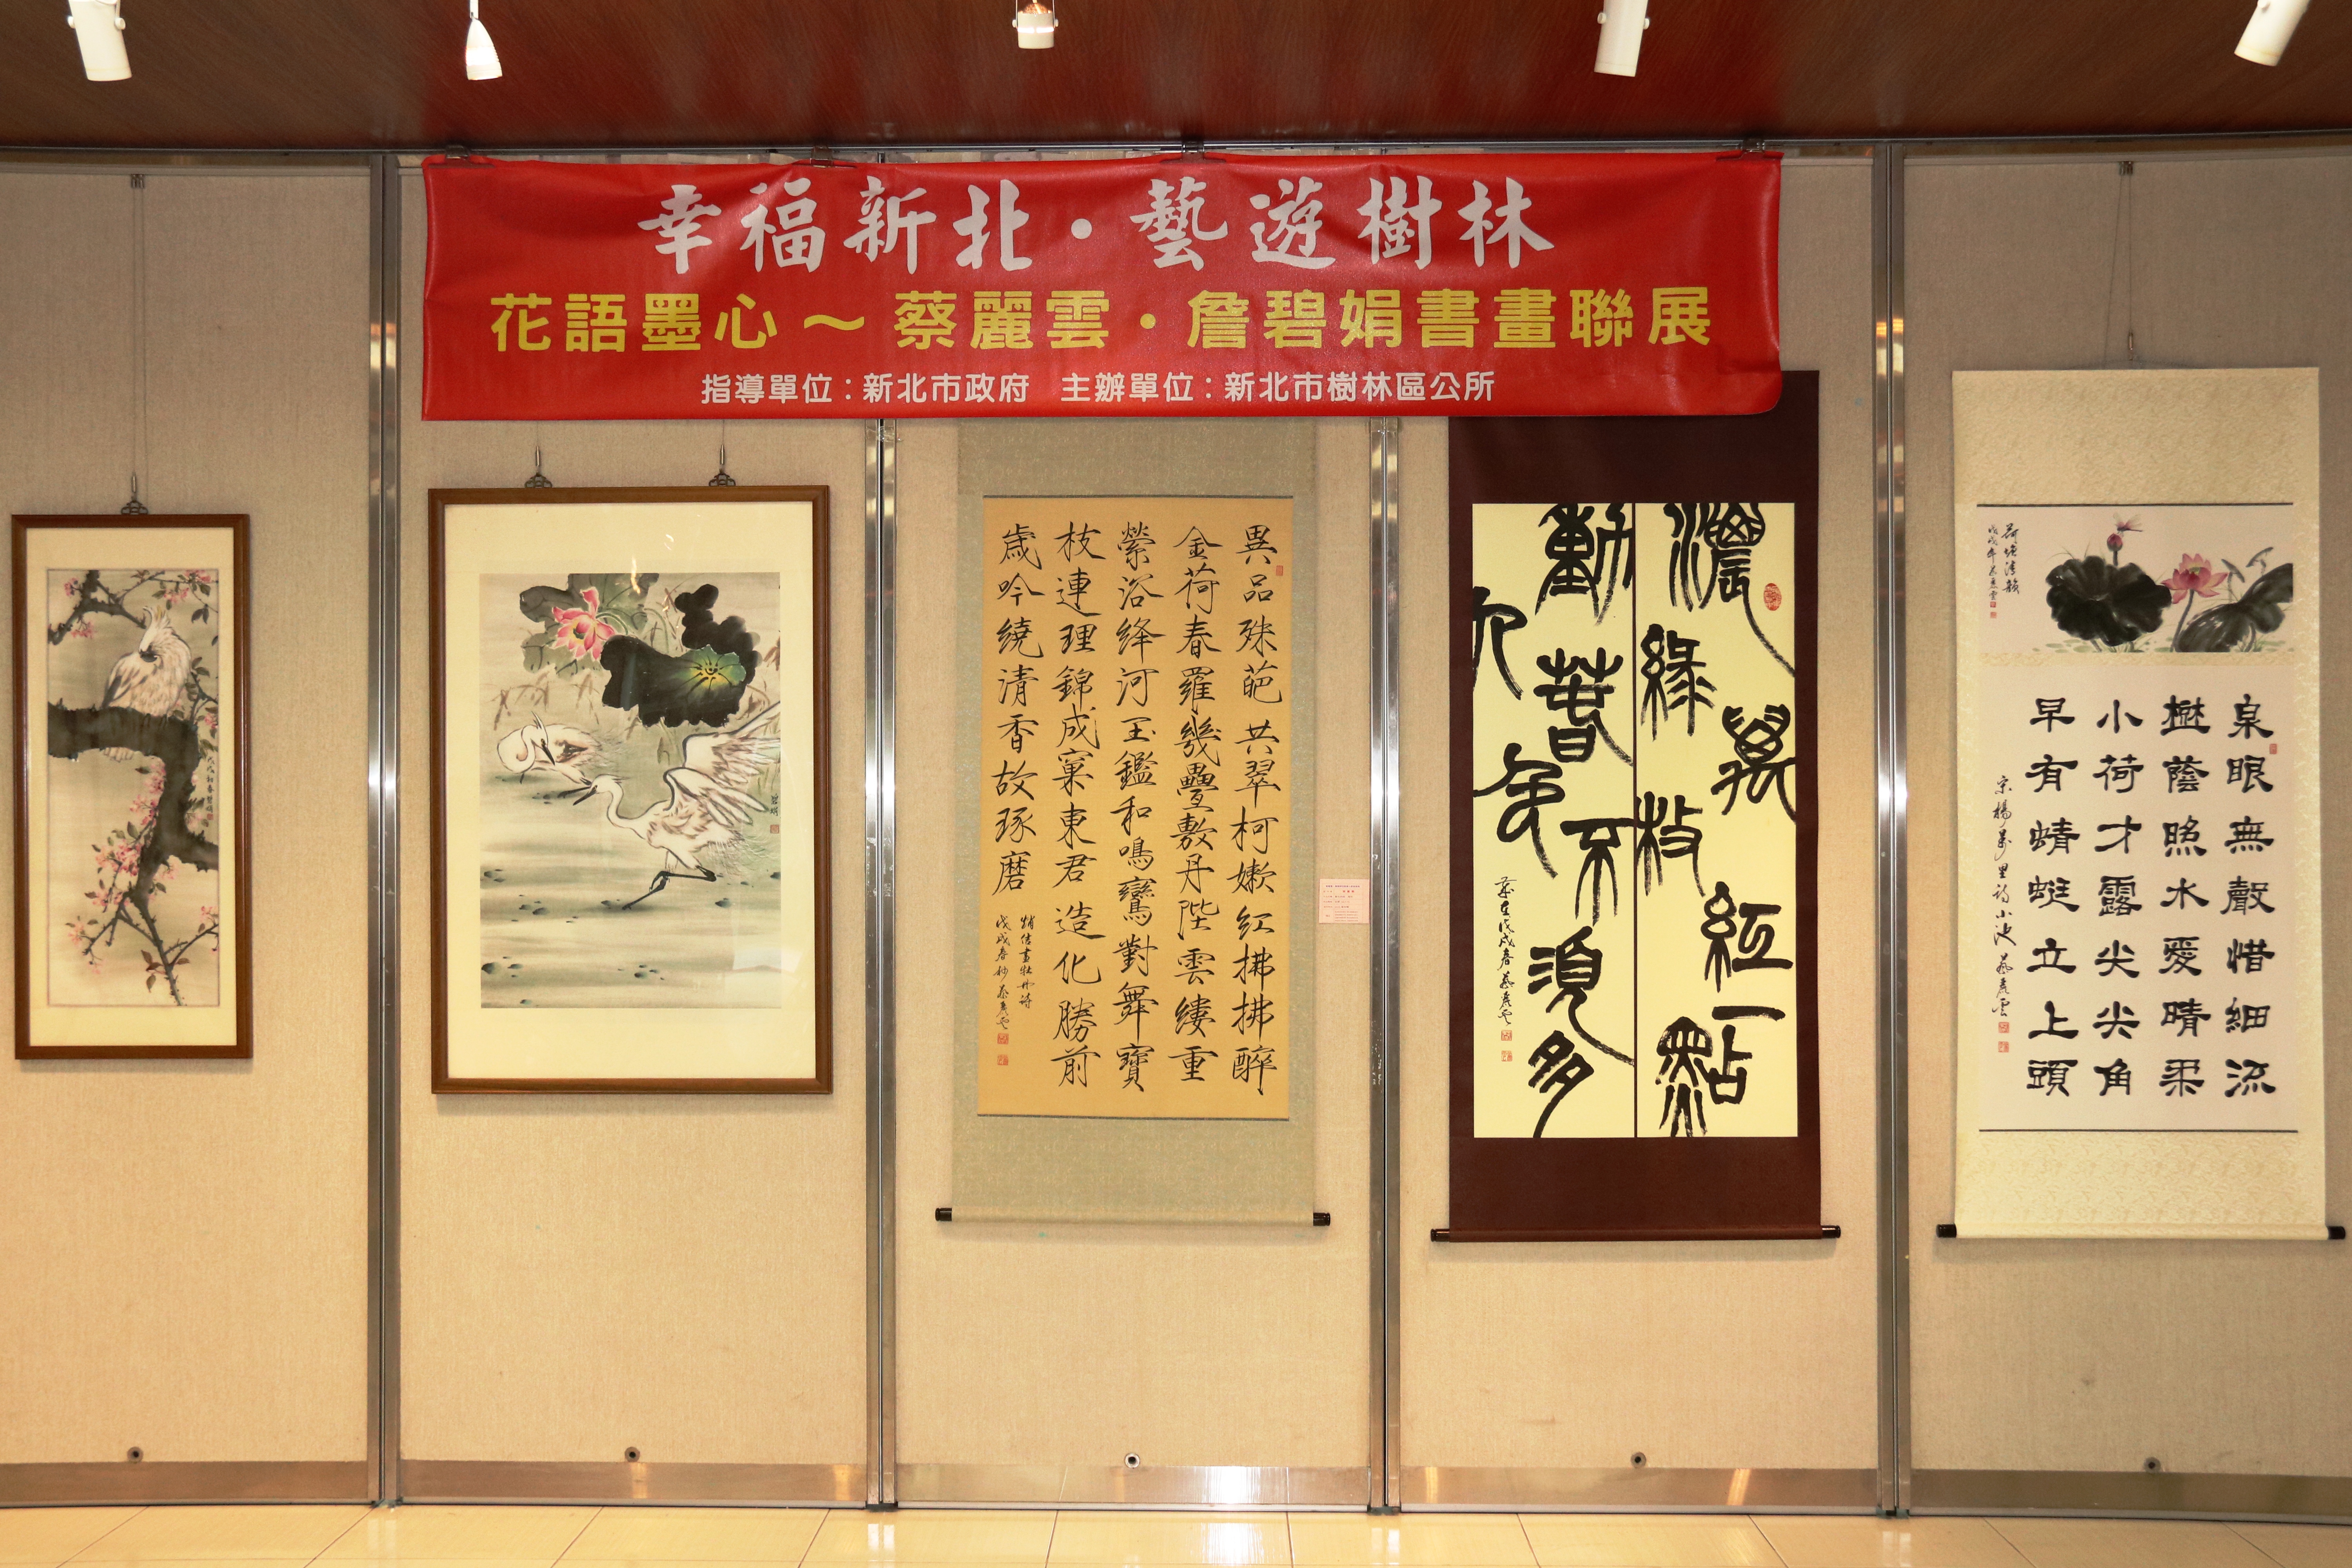 幸福新北・藝遊樹林
花語墨心～蔡麗雲・詹碧娟書畫聯展
指導單位：新北市政府　主辦單位：新北市樹林區公所
異品殊葩共翠柯嫩紅拂拂醉
金荷春羅幾疊敷丹陛雲縷重
縈浴絳河玉鑑和鳴鸞對舞寶
枝連理錦成窠東君造化勝前
歲吟繞清香故琢磨
戊戌春 蔡麗雲
濃綠萬枝紅一點
動人春色不須多
蔡麗雲
荷塘清韻
泉眼無聲惜細流
樹蔭照水愛晴柔
小荷才露尖尖角
早有蜻蜓立上頭
宋楊萬里詩小池 蔡麗雲
碧娟